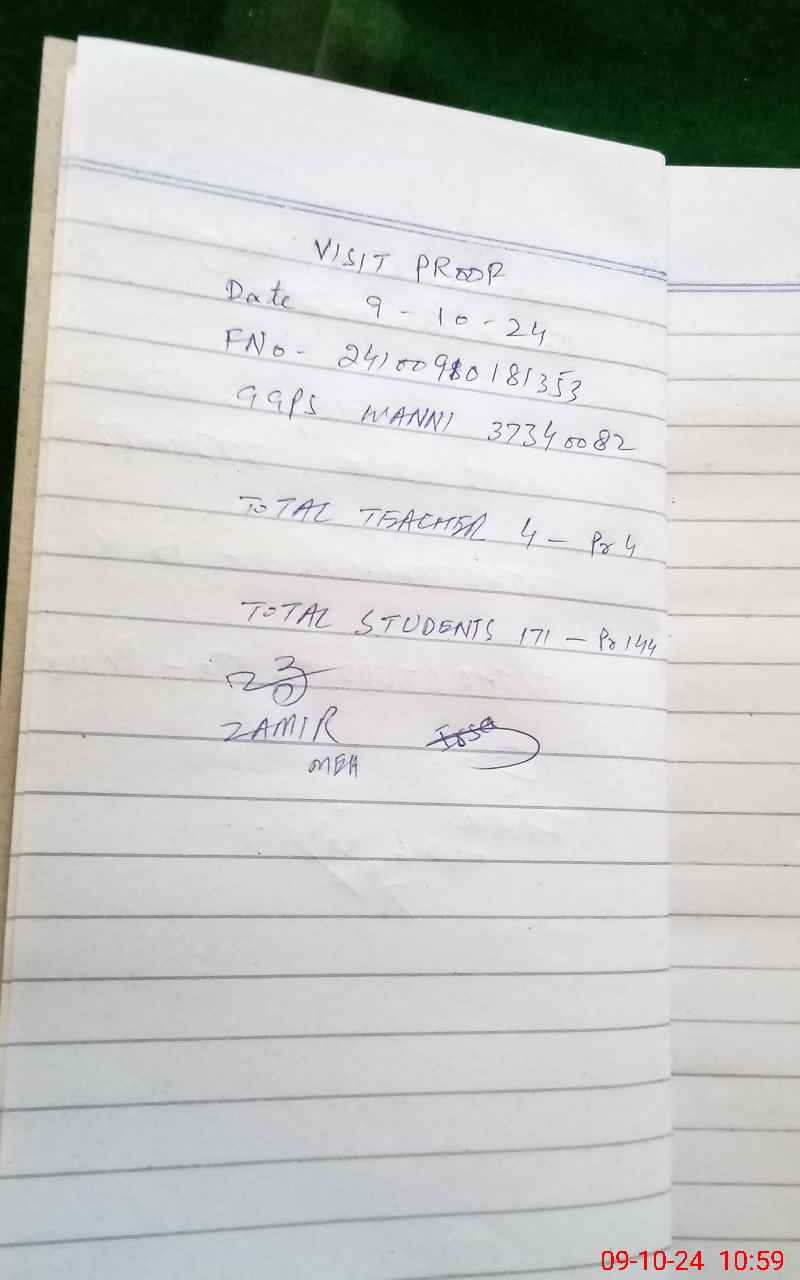 VISIT PROOF
Date 9-10-24
FNo- 24100980181353
GGPS WANNI 37340082
TOTAL TEACHER 4 - Pr 4
TOTAL STUDENTS 171 - Pr 144
ZAMIR
MEA
09-10-24 10:59